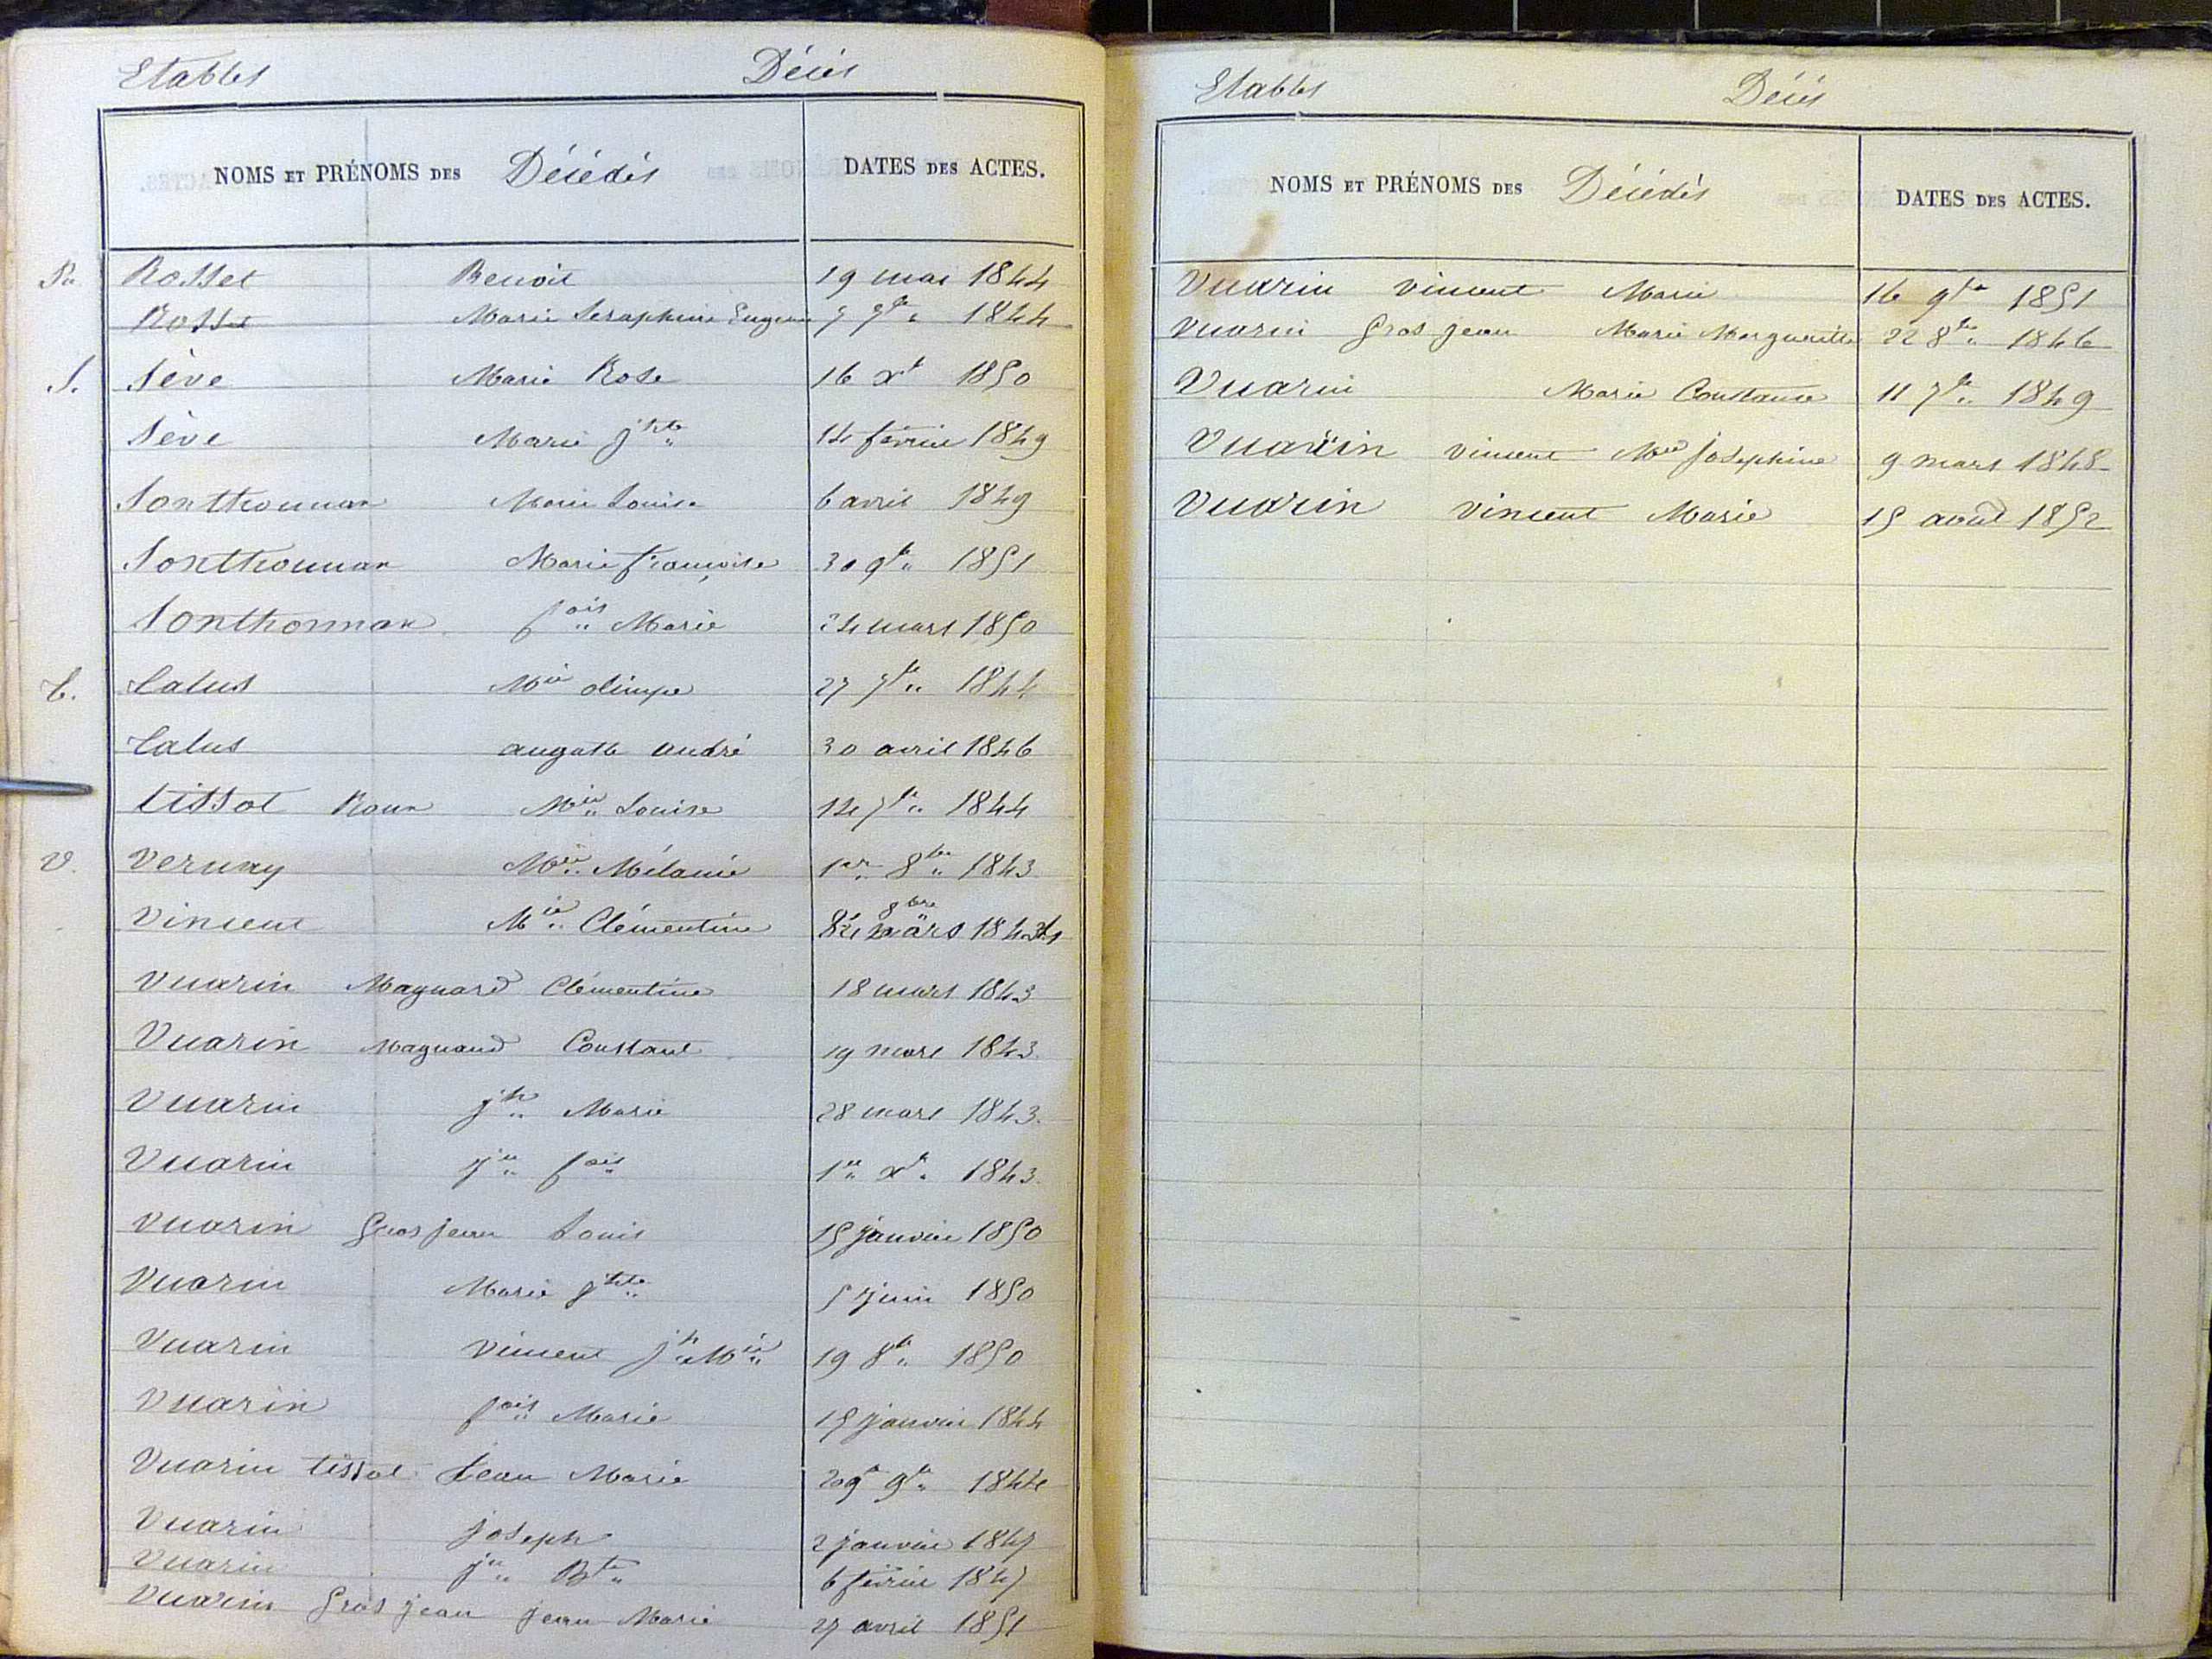 Etables Décès
NOMS ET PRÉNOMS DES Décédés DATES DES ACTES.
R. Rosset Benoit 19 mai 1844
Rosset Marie Seraphine Eugenie 7 7bre 1844
S. Sève Marie Rose 16 xbre 1850
Sève Marie jphte 14 février 1849
Sonthonnax Marie Louise 6 avril 1849
Sonthonnax Marie françoise 30 9bre 1851
Sonthonnax fois Marie 24 mars 1850
t. talus Mie olimpe 27 7bre 1844
talus auguste andré 30 avril 1846
tissot Roux Mie Louise 14 7bre 1844
V. Vernay Mie Mélanie 1er 8bre 1843
Vincent Mie Clémentine 8bre 1843
Vuarin Magnard Clémentine 18 mars 1843
Vuarin Magnard Constant 19 mars 1843
Vuarin jh Marie 28 mars 1843
Vuarin jn fois 1er xbre 1843
Vuarin Gros jean Louis 15 janvier 1850
Vuarin Marie jphte 5 juin 1850
Vuarin Vincent jh Mie 19 8bre 1850
Vuarin fois Marie 15 janvier 1844
Vuarin tissot Jean Marie 9bre 1844
Vuarin joseph 2 janvier 1847
Vuarin jn Bte 6 février 1847
Vuarin Gros jean jean Marie 27 avril 1851
Etables Décès
NOMS ET PRÉNOMS DES Décédés DATES DES ACTES.
Vuarin Vincent Marie 16 9bre 1851
Vuarin Gros jean Marie Marguerite 22 8bre 1846
Vuarin Marie Constance 11 7bre 1849
Vuarin Vincent Mie josephine 9 mars 1848
Vuarin Vincent Marie 15 août 1852